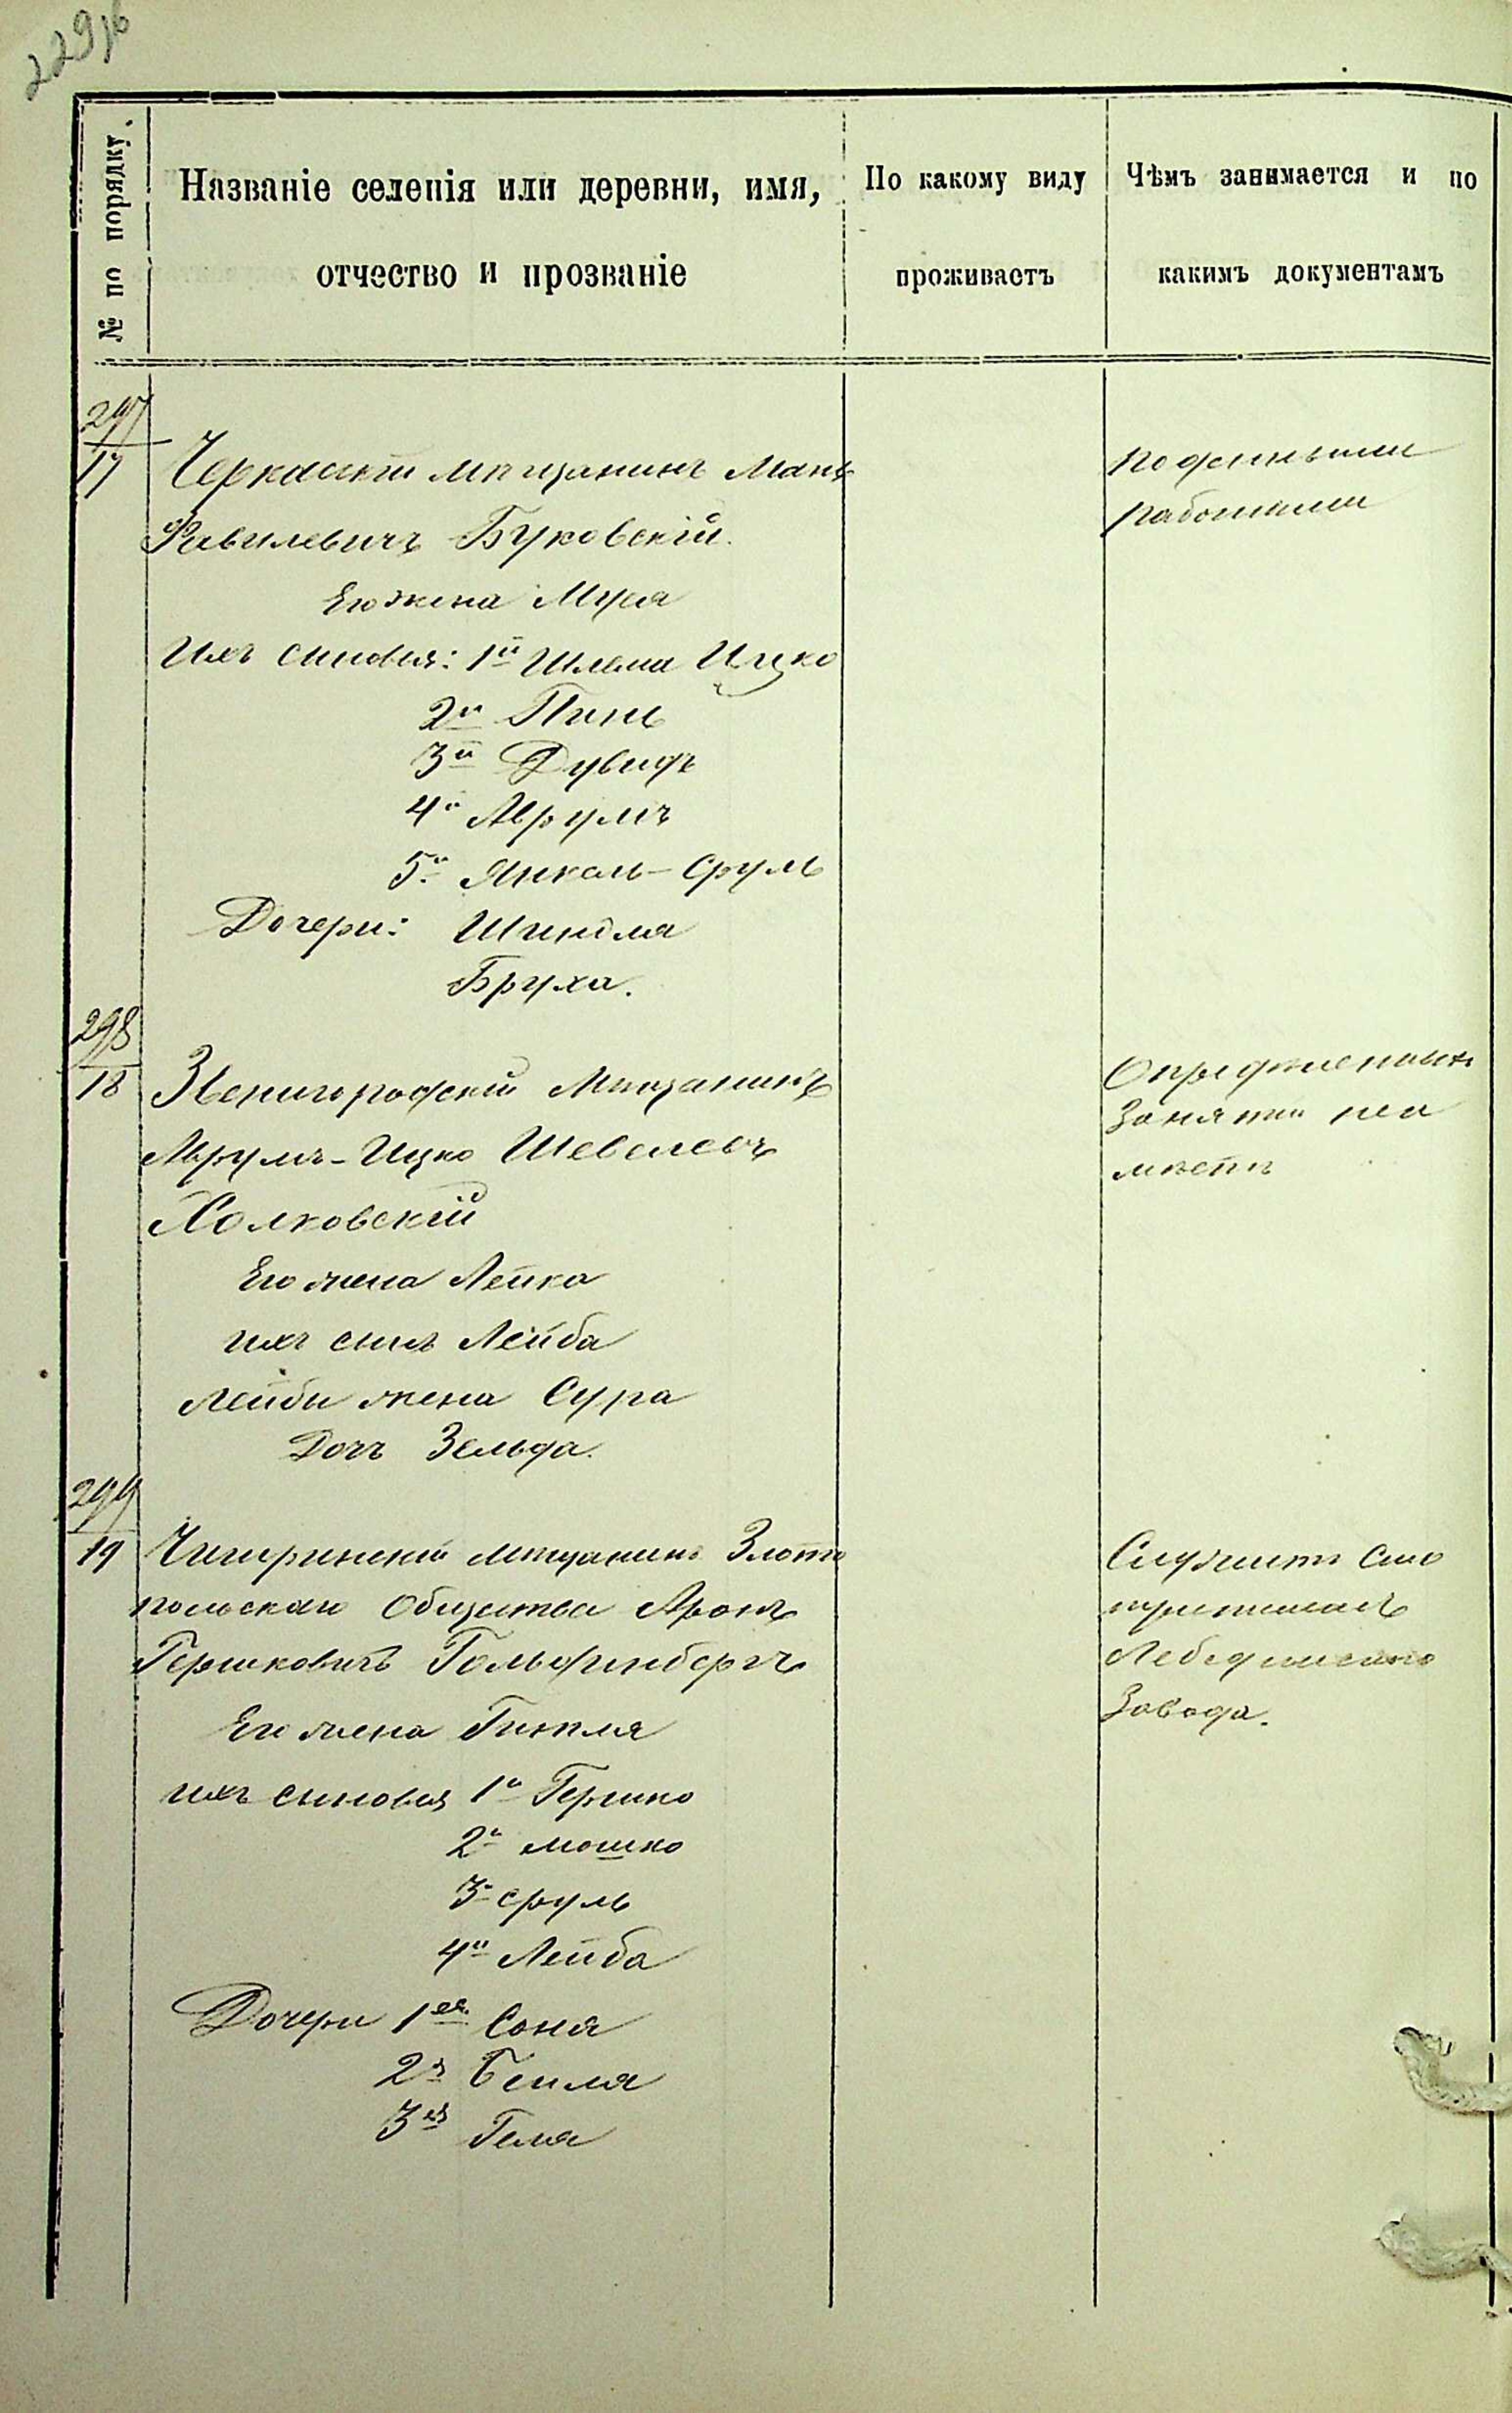 229об
№ по порядку.
Названіе селенія или деревни, имя,
отчество и прозваніе
По какому виду
проживаетъ
Чѣмъ занимается и по
какимъ документамъ
297
17
Черкаскій мѣщанинъ
Буковскій.
Его жена Муся
Ихъ синовья: 1й Шлема Ицко
2й Пинь
3й Дувидъ
4й Аврумъ
5й Янкель-Сруль
Дочери: Шиндля
Бруха.
поденными
работами
298
18
Звенигородскій Мѣщанинъ
Аврумъ-Ицко Шевелевъ
Холковскій
Его жена Лейка
ихъ синъ Лейба
Лейби жена Сура
Дочъ Зельда.
Опредѣленныхъ
занятій не
имѣетъ
299
19
Чигиринскій мѣщанинъ Злото
польскаго Общества Аронъ
Гершковичъ Гольфинбергъ
Его жена Гитля
ихъ синовья 1й Гершко
2й Мошко
3й Сруль
4й Лейба
Дочери 1ая Соня
2я Бейля
3ья Геля
Служитъ смо
трителемъ
Лебединскаго
Завода.